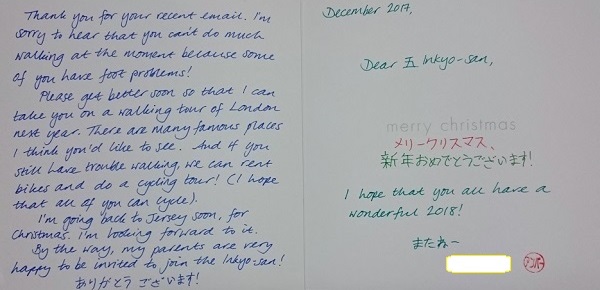 Thank you for your recent email. I'm
sorry to hear that you can't do much
walking at the moment because some
of you have foot problems!
Please get better soon so that I can
take you on a walking tour of London
next year. There are many famous places
I think you'd like to see. And if you
still have trouble walking, we can rent
bikes and do a cycling tour! (I hope
that all of you can cycle).
I'm going back to Jersey soon, for
Christmas. I'm looking forward to it.
By the way, my parents are very
happy to be invited to join the Inkyo-san!
ありがとうございます!
December 2017,
Dear 五 Inkyo-san,
merry christmas
メリークリスマス、
新年おめでとうございます!
I hope that you all have a
wonderful 2018!
またねー
アンバー